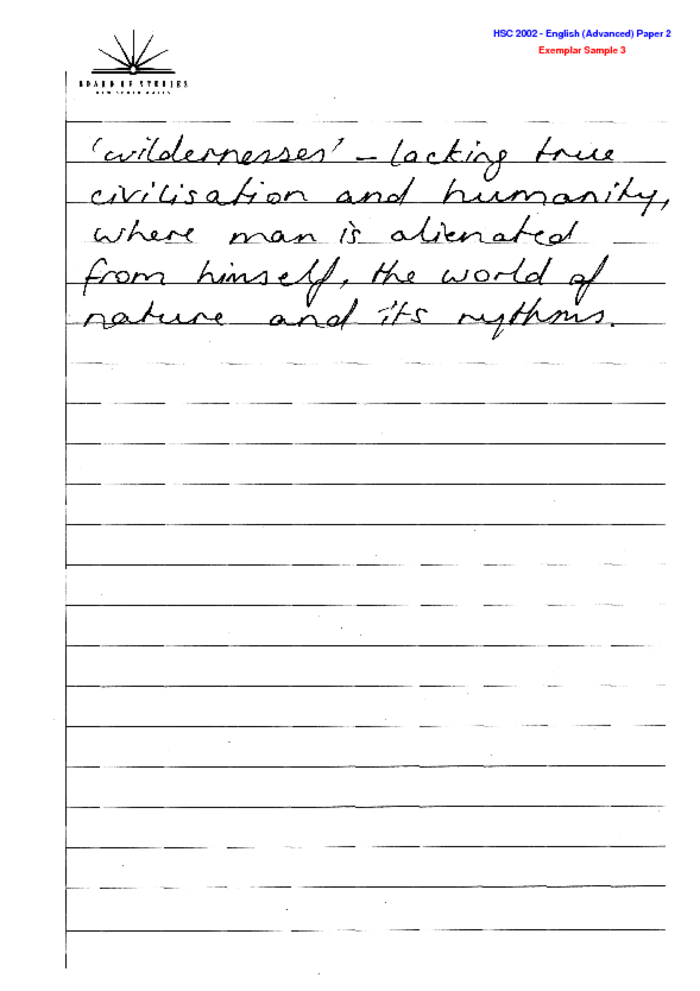 HSC 2002 - English (Advanced) Paper 2
Exemplar Sample 3
BOARD OF STUDIES
NEW SOUTH WALES
'wildernesses' – lacking true
civilisation and humanity,
where man is alienated
from himself, the world of
nature and its rythms.